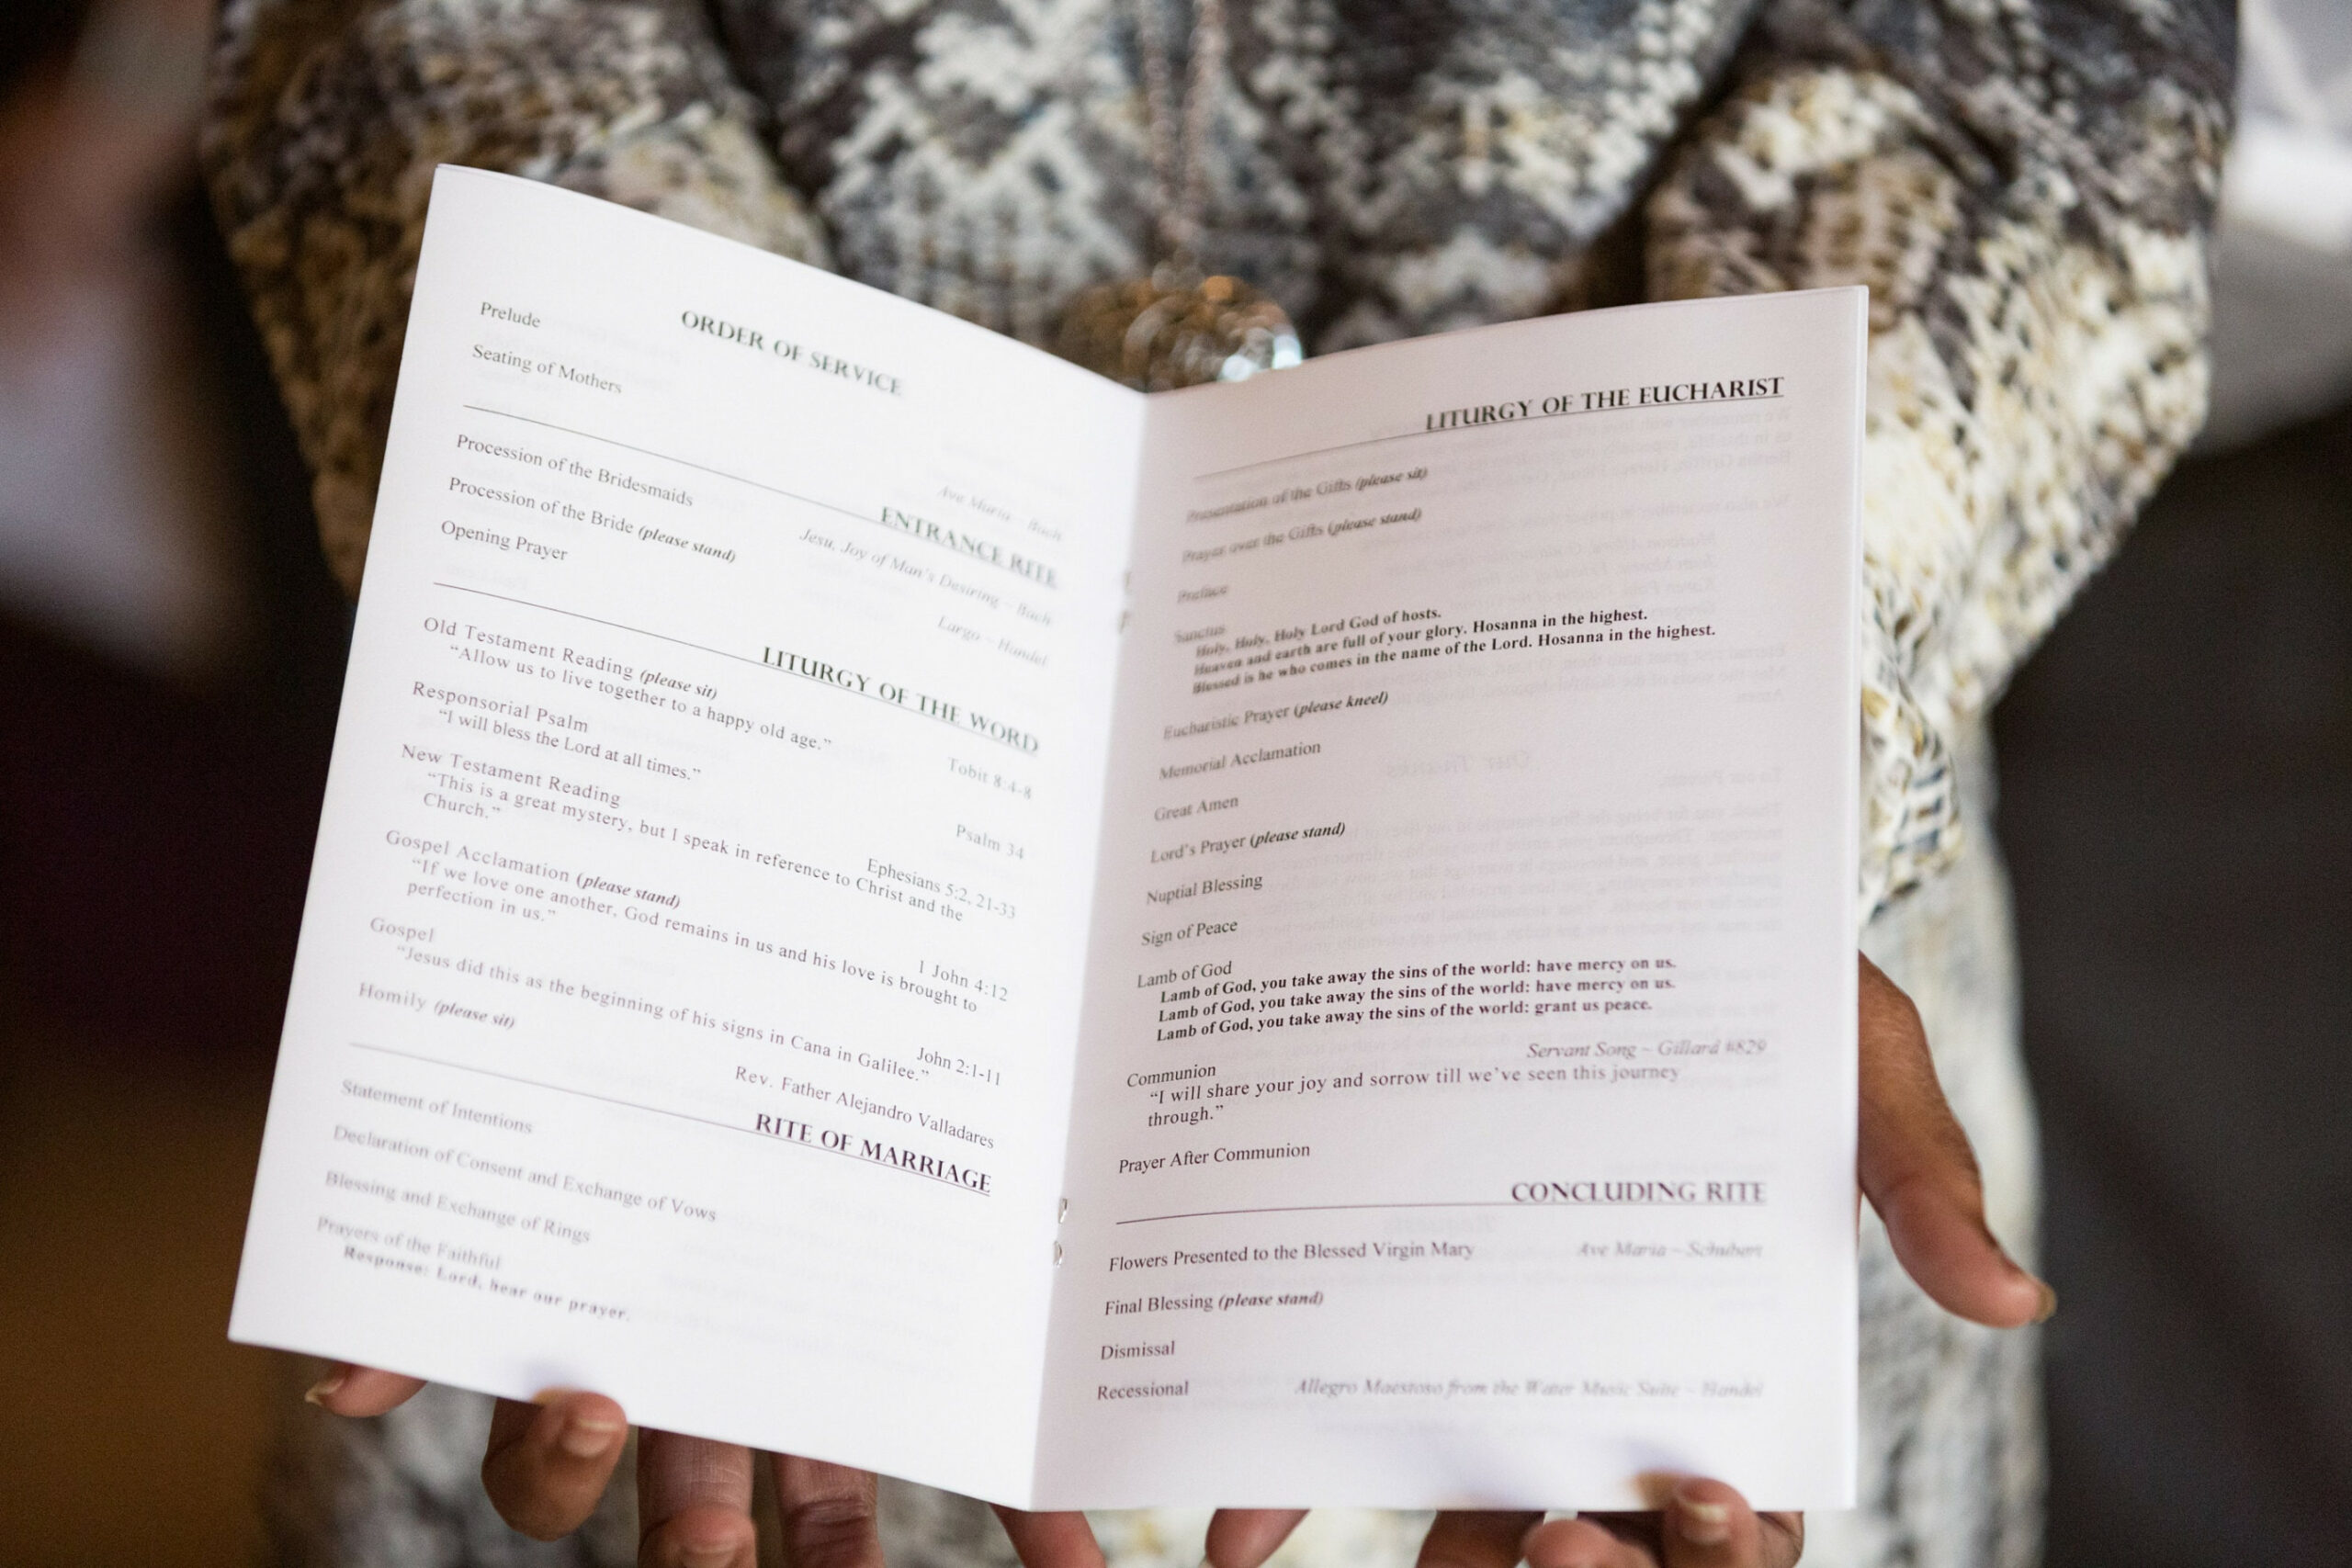 ORDER OF SERVICE
Prelude
Seating of Mothers
Ave Maria – Bach
ENTRANCE RITE
Procession of the Bridesmaids
Jesu, Joy of Man's Desiring – Bach
Procession of the Bride (please stand)
Largo – Handel
Opening Prayer
LITURGY OF THE WORD
Old Testament Reading (please sit)
Tobit 8:4-8
“Allow us to live together to a happy old age.”
Responsorial Psalm
Psalm 34
“I will bless the Lord at all times.”
New Testament Reading
Ephesians 5:2, 21-33
“This is a great mystery, but I speak in reference to Christ and the
Church.”
Gospel Acclamation (please stand)
1 John 4:12
“If we love one another, God remains in us and his love is brought to
perfection in us.”
Gospel
John 2:1-11
“Jesus did this as the beginning of his signs in Cana in Galilee.”
Homily (please sit)
Rev. Father Alejandro Valladares
RITE OF MARRIAGE
Statement of Intentions
Declaration of Consent and Exchange of Vows
Blessing and Exchange of Rings
Prayers of the Faithful
Response: Lord, hear our prayer.
LITURGY OF THE EUCHARIST
Presentation of the Gifts (please sit)
Prayer over the Gifts (please stand)
Preface
Sanctus
Holy, Holy, Holy Lord God of hosts.
Heaven and earth are full of your glory. Hosanna in the highest.
Blessed is he who comes in the name of the Lord. Hosanna in the highest.
Eucharistic Prayer (please kneel)
Memorial Acclamation
Great Amen
Lord's Prayer (please stand)
Nuptial Blessing
Sign of Peace
Lamb of God
Lamb of God, you take away the sins of the world: have mercy on us.
Lamb of God, you take away the sins of the world: have mercy on us.
Lamb of God, you take away the sins of the world: grant us peace.
Communion
Servant Song ~ Gillard #829
“I will share your joy and sorrow till we've seen this journey
through.”
Prayer After Communion
CONCLUDING RITE
Flowers Presented to the Blessed Virgin Mary
Ave Maria ~ Schubert
Final Blessing (please stand)
Dismissal
Recessional
Allegro Maestoso from the Water Music Suite ~ Handel